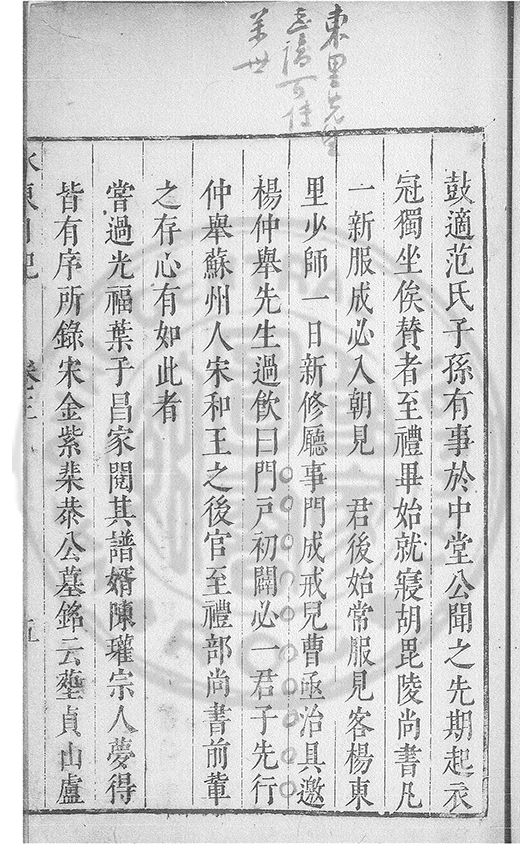 東里先生
高可传
萬世
鼓適范氏子孫有事於中堂公聞之先期起衣
冠獨坐俟賛者至禮畢始就寢胡毘陵尚書凡
一新服成必入朝見　君後始常服見客楊東
里少師一日新修廳事門成戒兒曹亟治具邀
楊仲舉先生過飲曰門戸初闢必一君子先行
仲舉蘇州人宋和王之後官至禮部尚書前輩
之存心有如此者
嘗過光福葉子昌家閱其譜婿陳瓘宗人夢得
皆有序所錄宋金紫葉恭公墓銘云塟貞山盧
水東日記　卷三　五